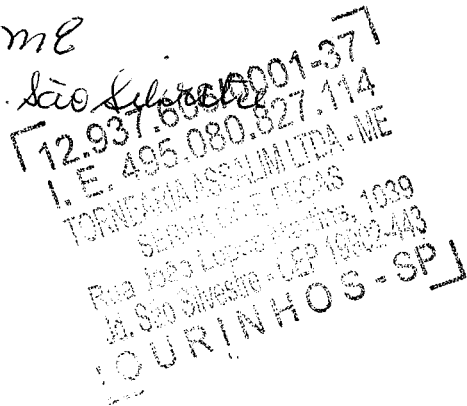 ME
São Silvestre
12.937.608/0001-37
I. E. 495.080.827.114
TORNEARIA ASSALIM LTDA - ME
SERVIÇOS E PEÇAS
Rua João Lopes Martins, 1039
Jd. São Silvestre - CEP 19902-443
OURINHOS - SP